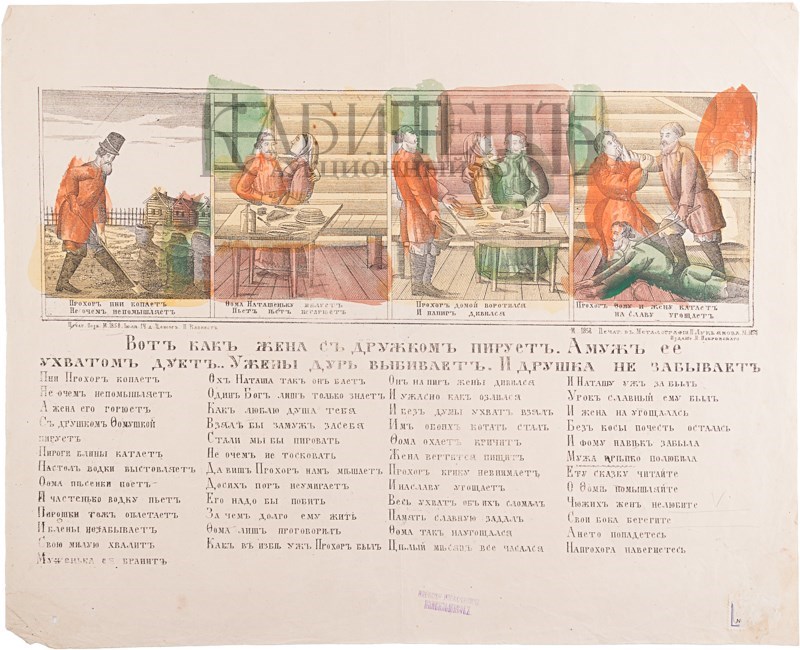 КАБИНЕТЪ
аукционный
Прохоръ пни копаетъ
Не очемъ непомышляетъ
Ѳома Наташеньку милуетъ
Пьетъ
Прохоръ домой воротился
И пиру дивился
Прохоръ Ѳому и жену катаетъ
На славу угощаетъ
Вотъ какъ жена съ дружкомъ пируетъ. А мужъ ее
ухватомъ дуетъ.. Ужены дурь выбиваетъ. И друшка не забываетъ
Пни Прохоръ копаетъ
Не очемъ непомышляетъ
А жена его горюетъ
Съ друшкомъ Ѳомушкой
пируетъ
Пироги блины катаетъ
Настолъ водки выстовляетъ
Ѳома пѣсенки поетъ
И частенько водку пьетъ
Пирошки тожъ оплетаетъ
И блены незабываетъ
Свою милую хвалитъ
Муженька ей бранитъ
Охъ Наташа такъ онъ баетъ
Одинъ Богъ лишъ только знаетъ
Какъ люблю душа тебя
Взялъ бы замужъ засебя
Стали мы бы пировать
Не очемъ не тосковать
Да вишъ Прохоръ намъ мѣшаетъ
Досихъ поръ неумираетъ
Его надо бы побить
За чемъ долго ему жить
Ѳома лишъ проговорилъ
Какъ в избы ужъ Прохоръ былъ
Онъ на пиръ жены дивился
И ужасно какъ озлился
И безъ думы ухватъ взялъ
Имъ обоихъ котать сталъ
Ѳома охаетъ кричитъ
Жена вертется пищитъ
Прохоръ крику невнимаетъ
И наславу угощаетъ
Весь ухватъ объ ихъ сломалъ
Память славную задалъ
Ѳома такъ наугощался
Цилый мисяцъ все чесался
И Наташу ужъ за былъ
Урокъ славный ему былъ
И жена на угощалась
Безъ косы почесть осталась
И Фому навѣкъ забыла
Мужа крѣпко полюбила
Ету сказку читайте
О Ѳомѣ помышляйте
Чюжихъ женъ нелюбите
Свои бока берегите
Ането попадетесь
Напрохора навернетесь